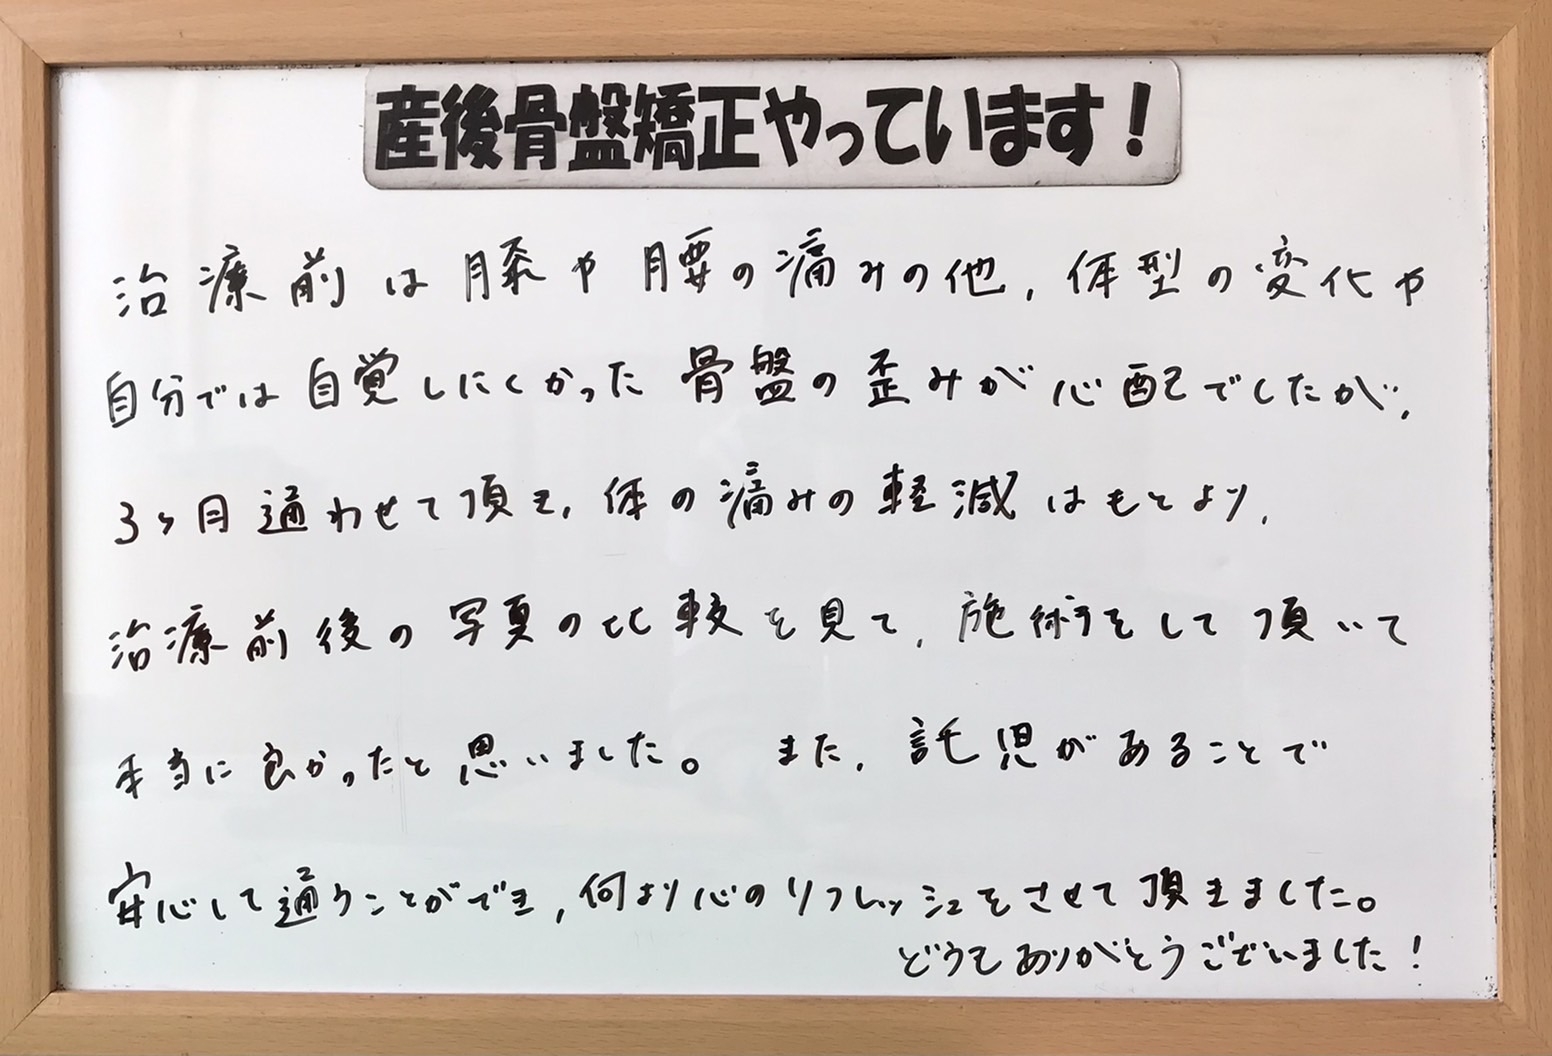 産後骨盤矯正やっています!
治療前は膝や腰の痛みの他、体型の変化や
自分では自覚しにくかった骨盤の歪みが心配でしたが、
3ヶ月通わせて頂き、体の痛みの軽減はもとより、
治療前後の写真の比較を見て、施術をして頂いて
本当に良かったと思いました。また、託児があることで
安心して通うことができ、何より心のリフレッシュをさせて頂きました。
どうもありがとうございました!